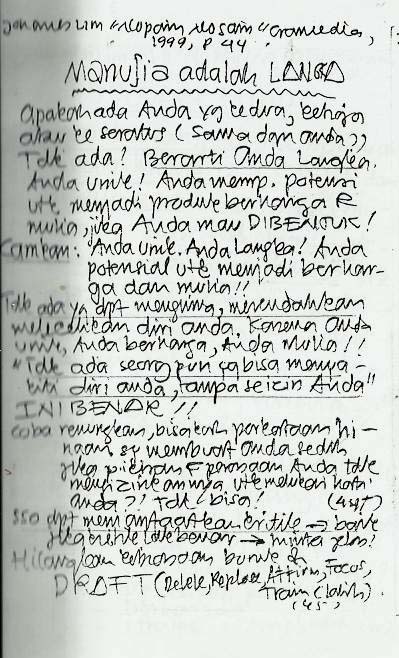 Johanes Lim "No pain No gain" Gramedia,
1999, p 44.
Manusia adalah LANGA
Apakah ada Anda yg kedua,
atau ke seratus (sama dgn anda??
Tdk ada! Berarti Anda Langka.
Anda unik! Anda memp. potensi
utk menjadi produk berharga &
mulia, jika Anda mau DIBENTUK!
Camkan: "Anda unik. Anda langka! Anda
potensial utk menjadi berhar-
ga dan mulia!!
Tdk ada yg dpt menghina, merendahkan
diri anda. Karena Anda
unik, Anda berharga, Anda mulia!!
"Tdk ada seorg pun yg bisa menya-
kiti diri anda, tanpa seizin Anda"
INI BENAR!!
Coba renungkan, bisakah perkataan hi-
naan membuat Anda sedih
jika pikiran & perasaan Anda tdk
mengizinkannya utk melukai hati
anda?! Tdk bisa!
sso dpt memanfaatkan kritik → baik
jika kritik tdk benar →
Hilangkan kebiasaan buruk dg
DRAFT (Delete, Replace, Affirm, Focus,
Train (latih).
(45)